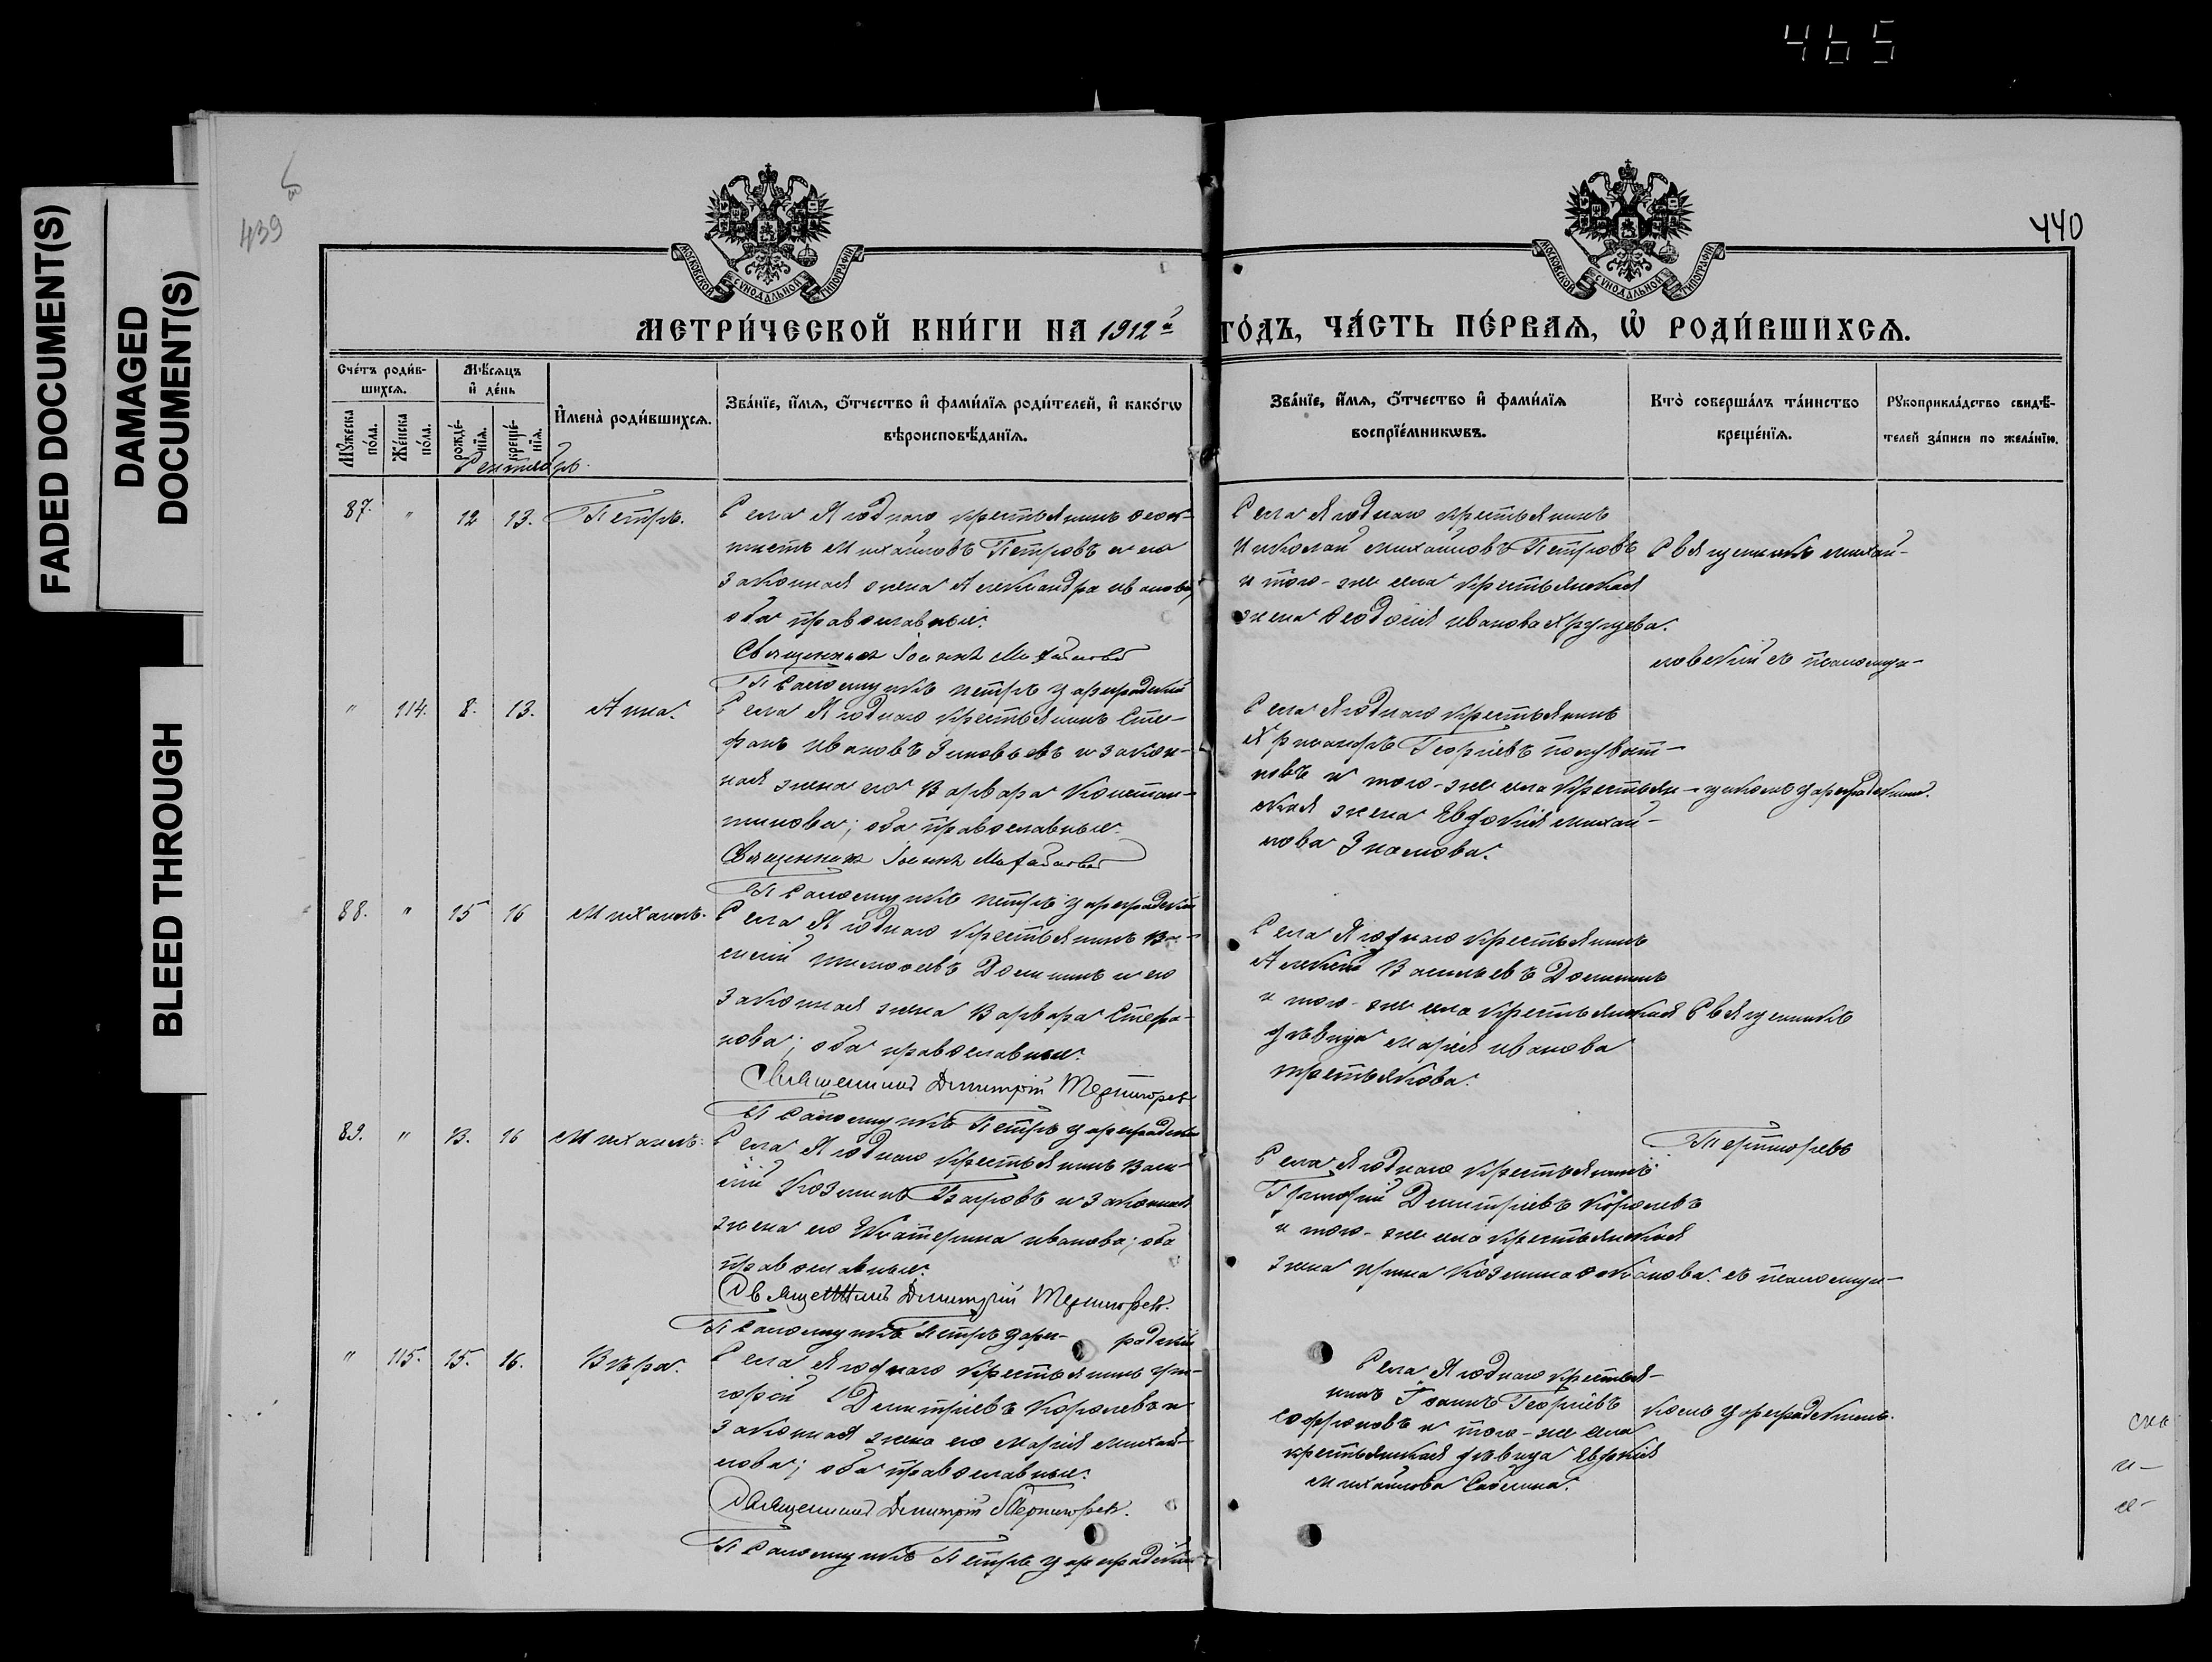 465
FADED DOCUMENT(S)
DAMAGED DOCUMENT(S)
BLEED THROUGH
439
440
МОСКОВСКОЙ СѴНОДАЛЬНОЙ ТИПОГРАФІИ
МОСКОВСКОЙ СѴНОДАЛЬНОЙ ТИПОГРАФІИ
МЕТРИ́ЧЕСКОЙ КНИ́ГИ НА 1912 й ГО́ДЪ, ЧА́СТЬ ПЕ́РВАѦ, Ѡ҆ РОДИ́ВШИХСѦ.
Сче́тъ роди́в-
шихсѧ.
Мꙋ́жеска по́ла.
Же́нска по́ла.
Мѣ́сѧцъ и҆ де́нь
рожде́-нїѧ.
креще́-нїѧ.
И҆мена̀ роди́вшихсѧ.
Зва́нїе, и҆́мѧ, ѻ҆́тчество и҆ фами́лїѧ роди́телей, и҆ како́гѡ
вѣроисповѣ́данїѧ.
Зва́нїе, и҆́мѧ, ѻ҆́тчество и҆ фами́лїѧ
воспрїе́мникѡвъ.
Кто̀ соверша́лъ та́инство
креще́нїѧ.
Рꙋкоприкла́дство свидѣ́-
телей за́писи по жела́нїю.
Сентябрь.
87. " 12 13. Петръ.
Села Ягоднаго крестьянинъ Ѳеок-
тистъ Михайловъ Петровъ и его
законная жена Александра Иванова,
оба православные.
Священник Іоаннъ
Псаломщикъ Петръ Цареградскій
Села Ягоднаго крестьянинъ
Николай Михайловъ Петровъ
и того-же села крестьянская
жена Ѳеодосія Иванова Хрущева.
Священникъ Михай-
ловскій съ псаломщи-
" 114. 8. 13. Анна.
Села Ягоднаго крестьянинъ Сте-
фанъ Ивановъ Зиновьевъ и закон-
ная жена его Варвара Констан-
тинова; оба православные.
Священник Іоаннъ
Псаломщикъ Петръ Цареградскій
Села Ягоднаго крестьянинъ
Георгіевъ
новъ и того-же села крестьян-
ская жена Евдокія Михай-
лова
комъ Цареградскимъ.
88. " 15 16 Михаилъ.
Села Ягоднаго крестьянинъ Ва-
силій Тимоѳеевъ Доминъ и его
законная жена Варвара Стефа-
нова; оба православные.
Священникъ Димитрій Терпигорев
Псаломщикъ Петръ Цареградскій
Села Ягоднаго крестьянинъ
Алексѣй Васильевъ Доминъ
и того-же села крестьянская
дѣвица Марія Иванова
Третьякова.
Священникъ
Терпигоревъ
съ псаломщи-
89. " 13. 16 Михаилъ.
Села Ягоднаго крестьянинъ Васи-
лій Козминъ Багровъ и законная
жена его Екатерина Иванова; оба
православные.
Священникъ Димитрій Терпигорев.
Псаломщикъ Петръ Царе- радскій
Села Ягоднаго крестьянинъ
Григорій Димитріевъ Королевъ
и того-же села крестьянская
жена Ирина Козмина
" 115. 15. 16. Вѣра.
Села Ягоднаго крестьянинъ Гри-
горій Димитріевъ Королевъ и
законная жена его Марія Михай-
лова; оба православные.
Священникъ Димитрій Терпигорев.
Псаломщикъ Петръ Цареградскій
Села Ягоднаго крестья-
нинъ Іоаннъ Георгіевъ
Софроновъ и того-же села
крестьянская дѣвица Евдокія
Михайлова
комъ Цареградскимъ.